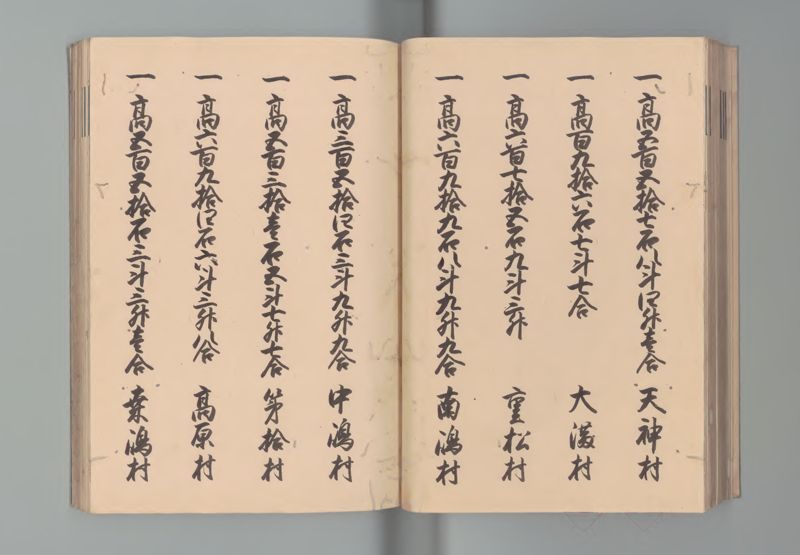 一 高五百五拾七石八斗四升壱合 天神村
一 高百九拾六石七斗七合 大薮村
一 高六百七拾五石九斗三升 重松村
一 高六百九拾九石八斗九升九合 南潟村
一 高三百五拾四石三斗九升九合 中潟村
一 高五百三拾壱石五斗七升七合 第拾村
一 高六百九拾四石六斗三升八合 高原村
一 高五百五拾石三斗三升壱合 桒潟村